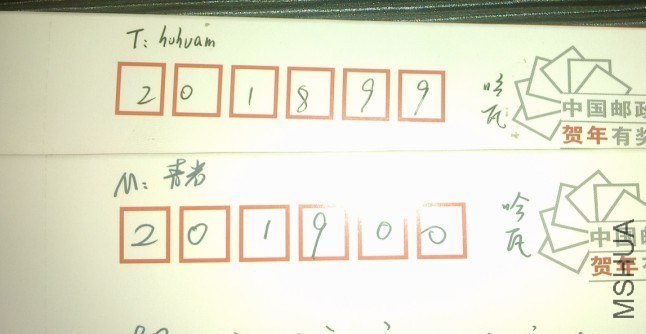 T: huhuam
201899
哈瓦
中国邮政
贺年有奖
M: 青岩
201900
哈瓦
中国邮
贺年有
MSHUA